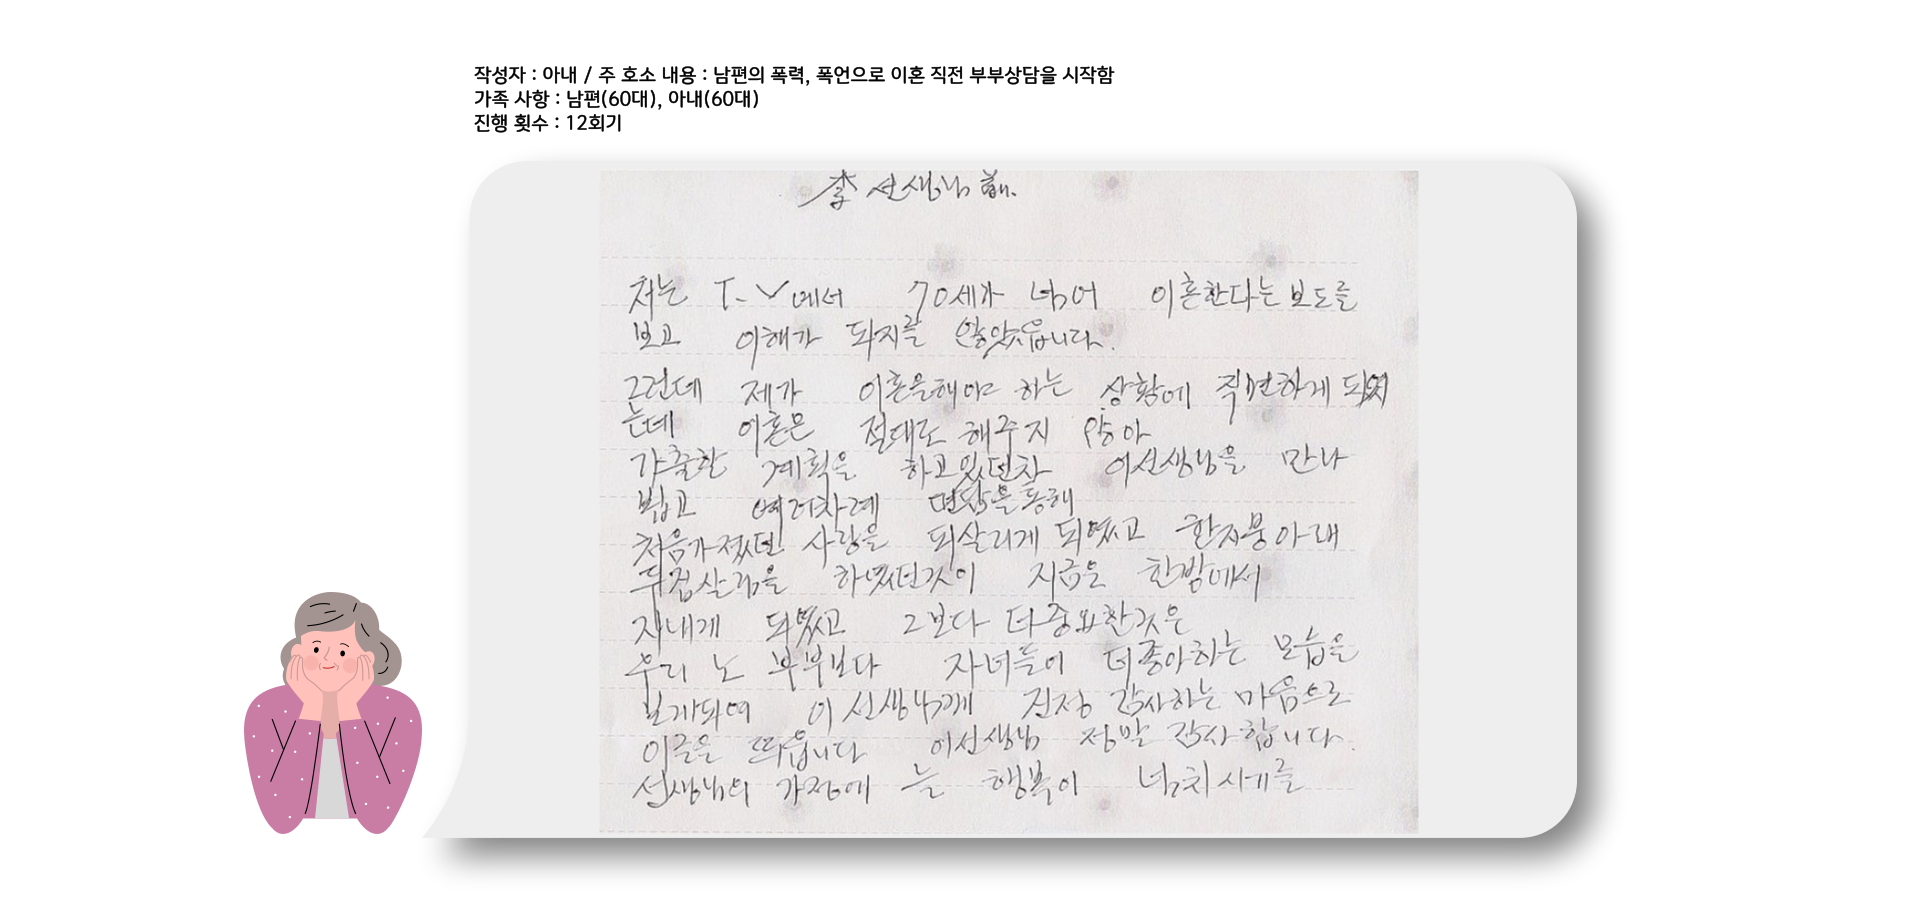 작성자 : 아내 / 주 호소 내용 : 남편의 폭력, 폭언으로 이혼 직전 부부상담을 시작함
가족 사항 : 남편(60대), 아내(60대)
진행 횟수 : 12회기
李 선생님 前.
저는 T.V에서 70세가 넘어 이혼한다는 보도를
보고 이해가 되지를 않았읍니다.
그런데 제가 이혼을해야 하는 상황에 직면하게 되었
는데 이혼은 절대로 해주지 않아
가출한 계획을 하고있던차 이선생님을 만나
뵙고 여러차례 면담을통해
처음가졌던 사랑을 되살리게 되였고 한지붕아래
두집살림을 하였던것이 지금은 한방에서
지내게 되였고 그보다 더중요한것은
우리 노 부부보다 자녀들이 더좋아하는 모습을
보게되여 이선생님께 진정 감사하는 마음으로
이글을 띄웁니다 이선생님 정말 감사합니다.
선생님의 가정에 늘 행복이 넘치시기를